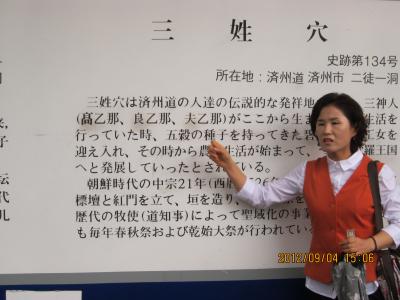 三姓穴
史跡第134号
所在地：済州道 済州市 二徒一洞
三姓穴は済州道の人達の伝説的な発祥地 三神人
(髙乙那、良乙那、夫乙那)がここから生ま 生活を
行っていた時、五穀の種子を持ってきた碧 王女を
迎え入れ、その時から農 生活が始まって、 羅王国
へと発展していったとされている。
朝鮮時代の中宗21年(西暦
標壇と紅門を立て、垣を造り、
歴代の牧使(道知事)によって聖域化の事業
も毎年春秋祭および乾始大祭が行われている
来,
子
伝
代
儿
2012/09/04 15:06